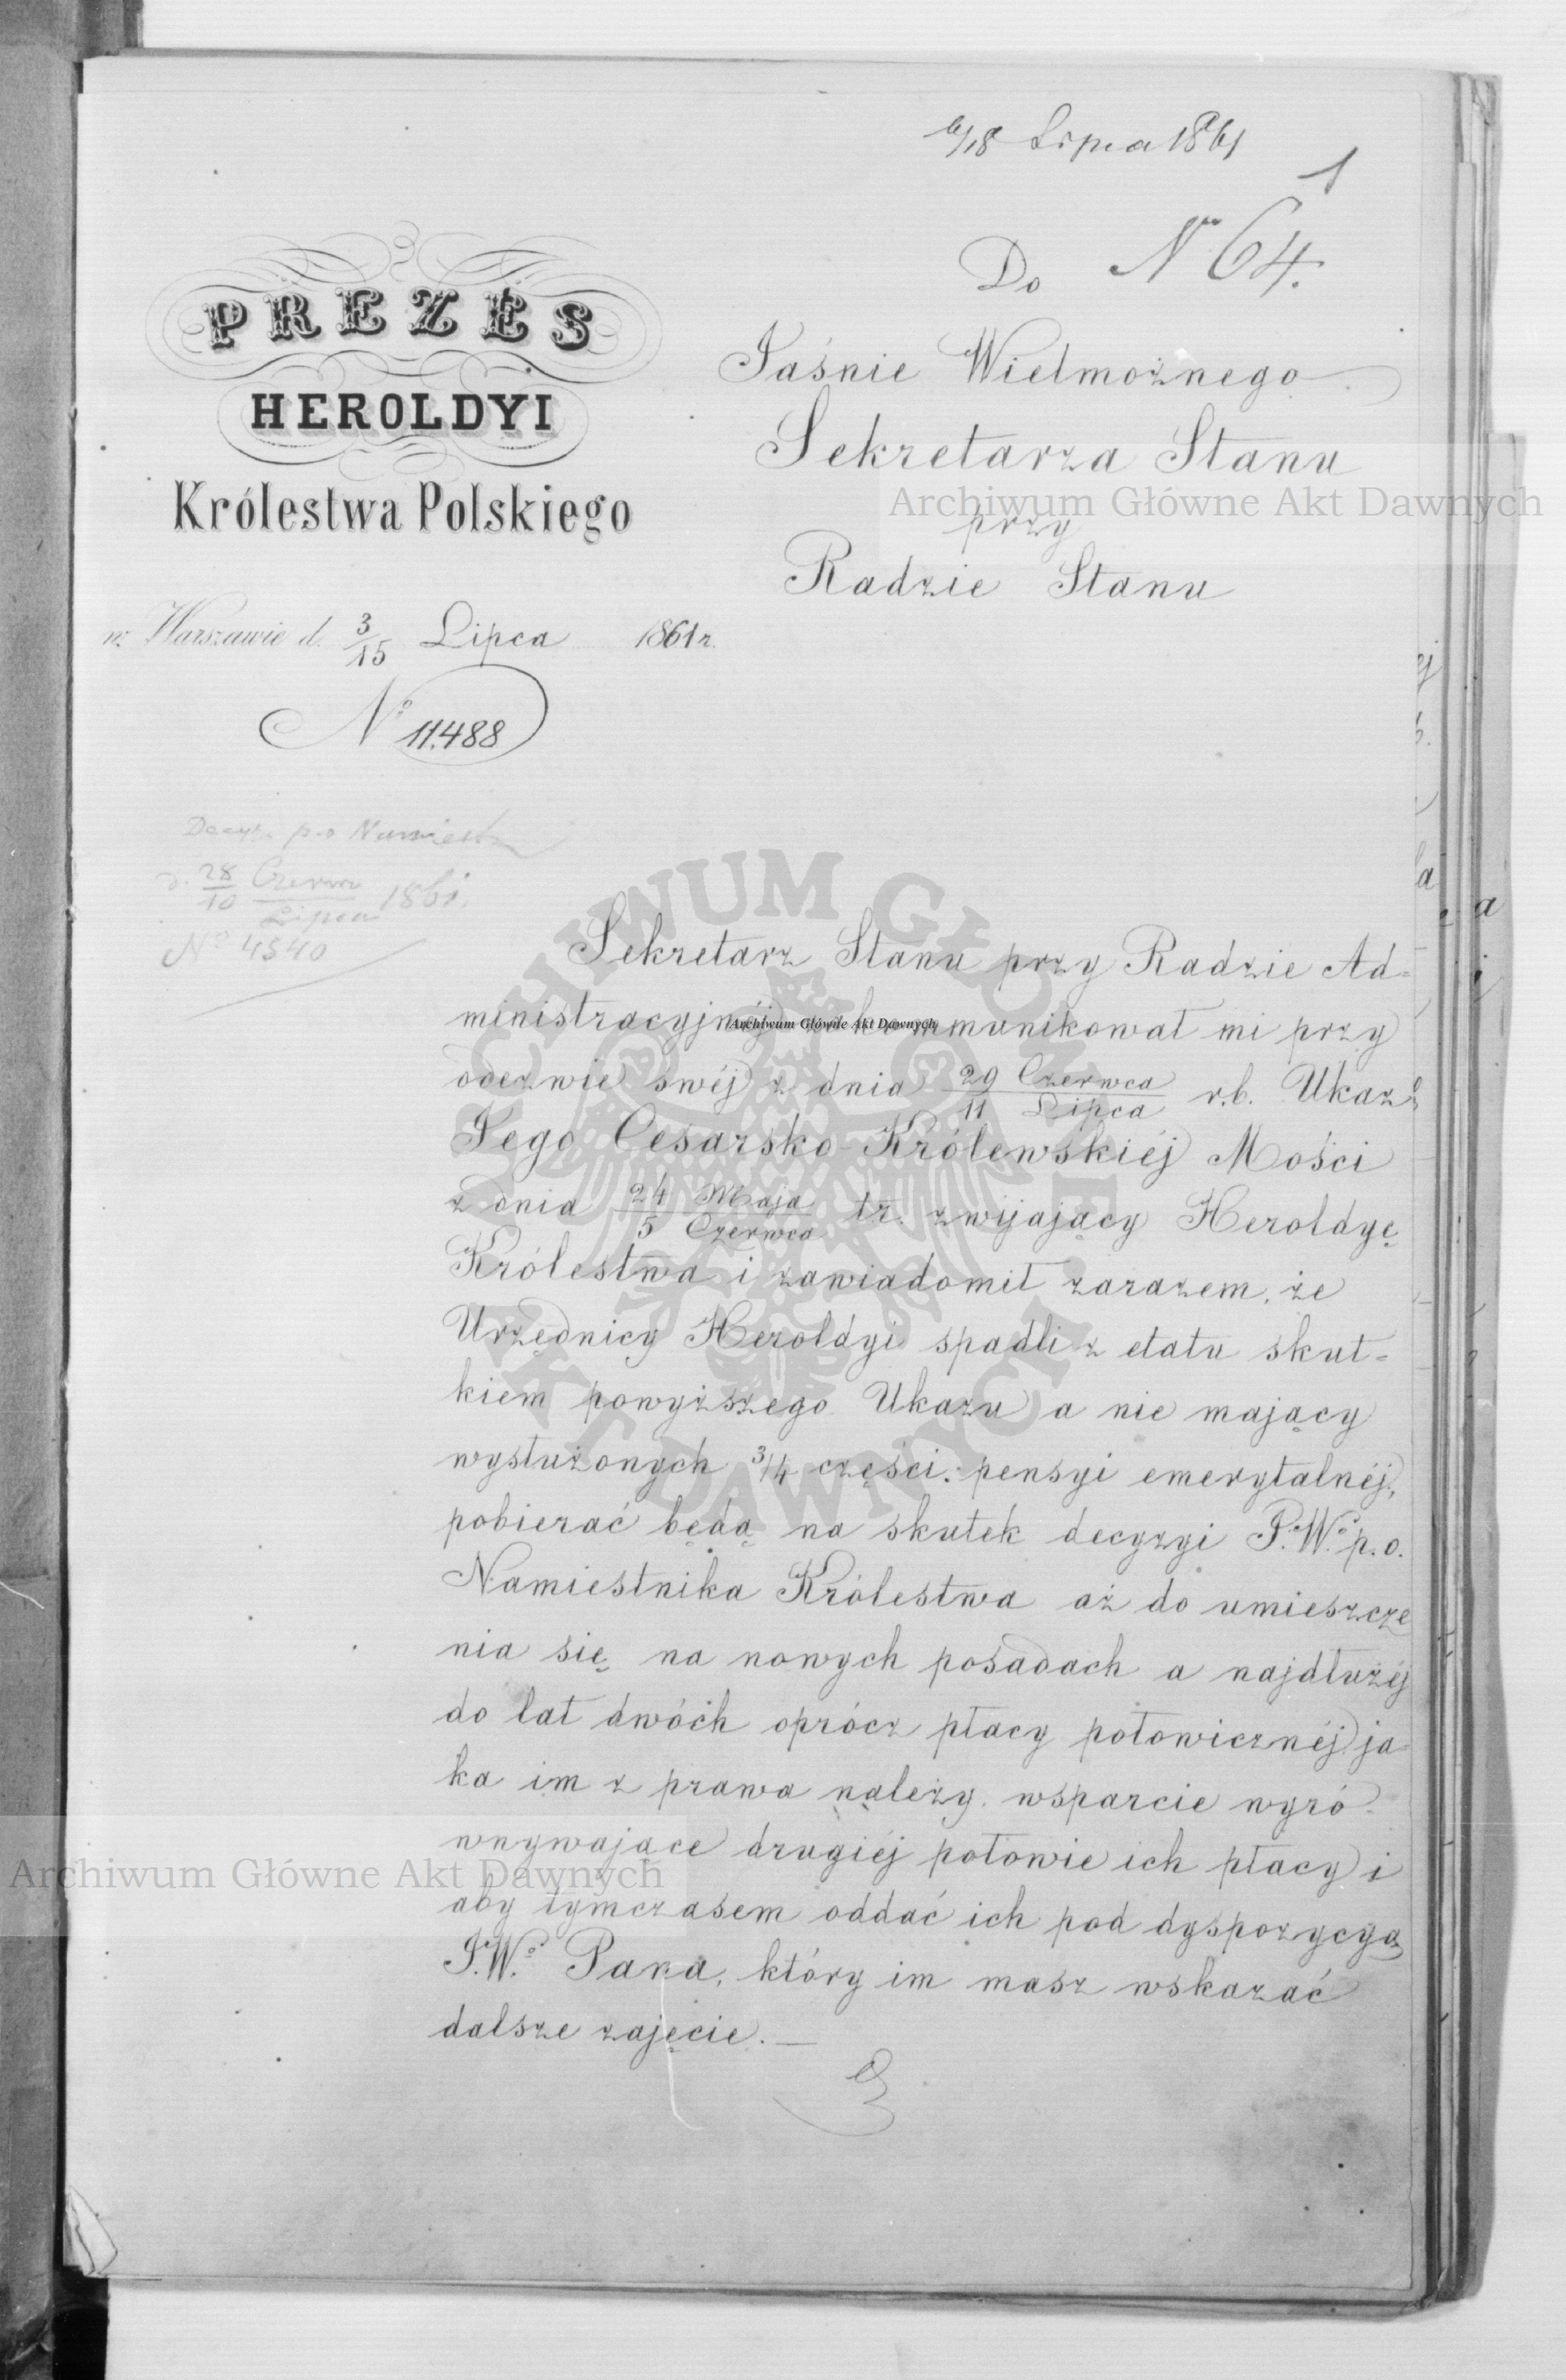 6/18 Lipca 1861
1
Do N 64.
PREZES
HEROLDYI
Królestwa Polskiego
w Warszawie d. 3/15 Lipca 1861 r.
No 11.488
Jaśnie Wielmożnego
Sekretarza Stanu
przy
Radzie Stanu
Decyz. p.o Namiest
d. 28/10 Czerwc/Lipca 1861.
No 4540
Sekretarz Stanu przy Radzie Ad=
ministracyjnéj zakommunikował mi przy
odezwie swéj z dnia 29 Czerwca/11 Lipca r.b. Ukaz
Jego Cesarsko-Królewskiéj Mości
z dnia 24 Maja/5 Czerwca t.r. zwijający Heroldyę
Królestwa i zawiadomił zarazem, że
Urzędnicy Heroldyi spadli z etatu skut=
kiem powyższego Ukazu a nie mający
wysłużonych 3/4 części pensyi emerytalnéj,
pobierać będą na skutek decyzyi J.W. p.o.
Namiestnika Królestwa aż do umieszcze
nia się na nowych posadach a najdłużéj
do lat dwóch oprócz płacy połowicznéj ja
ka im z prawa należy, wsparcie wyró-
wnywające drugiéj połowie ich płacy i
aby tymczasem oddać ich pod dyspozycyą
J.W. Pana, który im masz wskazać
dalsze zajęcie. —
Archiwum Główne Akt Dawnych
Archiwum Główne Akt Dawnych
Archiwum Główne Akt Dawnych
ARCHIWUM GŁÓWNE
AKT DAWNYCH